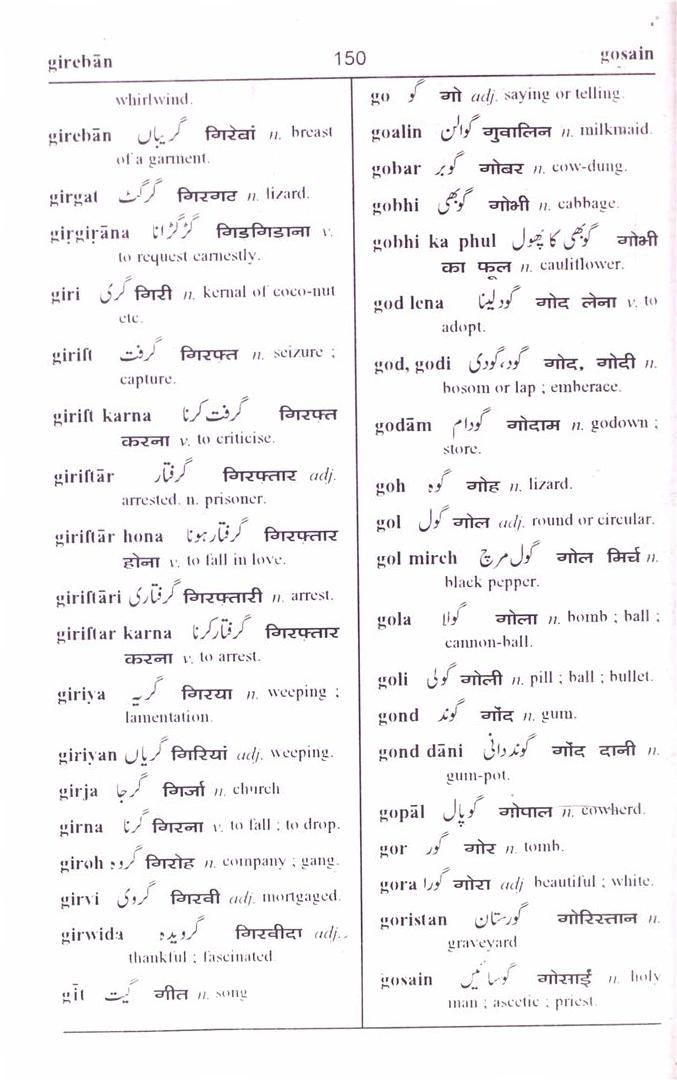 girebān
150
gosain
whirlwind.
girebān گریباں गिरेवां n. breast
of a garment.
girgat گرگٹ गिरगट n. lizard.
girgirāna گڑگڑانا गिडगिडाना v.
to request earnestly.
giri گری गिरी n. kernal of coco-nut
etc.
girift گرفت गिरफ्त n. seizure ;
capture.
girift karna گرفت کرنا गिरफ्त
करना v. to criticise.
giriftār گرفتار गिरफ्तार adj.
arrested. n. prisoner.
giriftār hona گرفتار ہونا गिरफ्तार
होना v. to fall in love.
giriftāri گرفتاری गिरफ्तारी n. arrest.
giriftar karna گرفتار کرنا गिरफ्तार
करना v. to arrest.
giriya گریہ गिरया n. weeping ;
lamentation.
giriyan گریاں गिरियां adj. weeping.
girja گرجا गिर्जा n. church
girna گرنا गिरना v. to fall ; to drop.
giroh گروہ गिरोह n. company ; gang.
girvi گروی गिरवी adj. mortgaged.
girwida گرویدہ गिरवीदा adj..
thankful ; fascinated.
gīt گیت गीत n. song
go گو गो adj. saying or telling.
goalin گوالن गुवालिन n. milkmaid.
gobar گوبر गोबर n. cow-dung.
gobhi گوبھی गोभी n. cabbage.
gobhi ka phul گوبھی کا پھول गोभी
का फूल n. cauliflower.
god lena گود لینا गोद लेना v. to
adopt.
god, godi گود، گودی गोद, गोदी n.
bosom or lap ; emberace.
godām گودام गोदाम n. godown ;
store.
goh گوہ गोह n. lizard.
gol گول गोल adj. round or circular.
gol mirch گول مرچ गोल मिर्च n.
black pepper.
gola گولا गोला n. bomb ; ball ;
cannon-ball.
goli گولی गोली n. pill ; ball ; bullet.
gond گوند गोंद n. gum.
gond dāni گوند دانی गोंद दानी n.
gum-pot.
gopāl گوپال गोपाल n. cowherd.
gor گور गोर n. tomb.
gora گورا गोरा adj beautiful ; white.
goristan گورستان गोरिस्तान n.
graveyard
gosain گوسائیں गोसाईं n. holy
man ; ascetic ; priest.